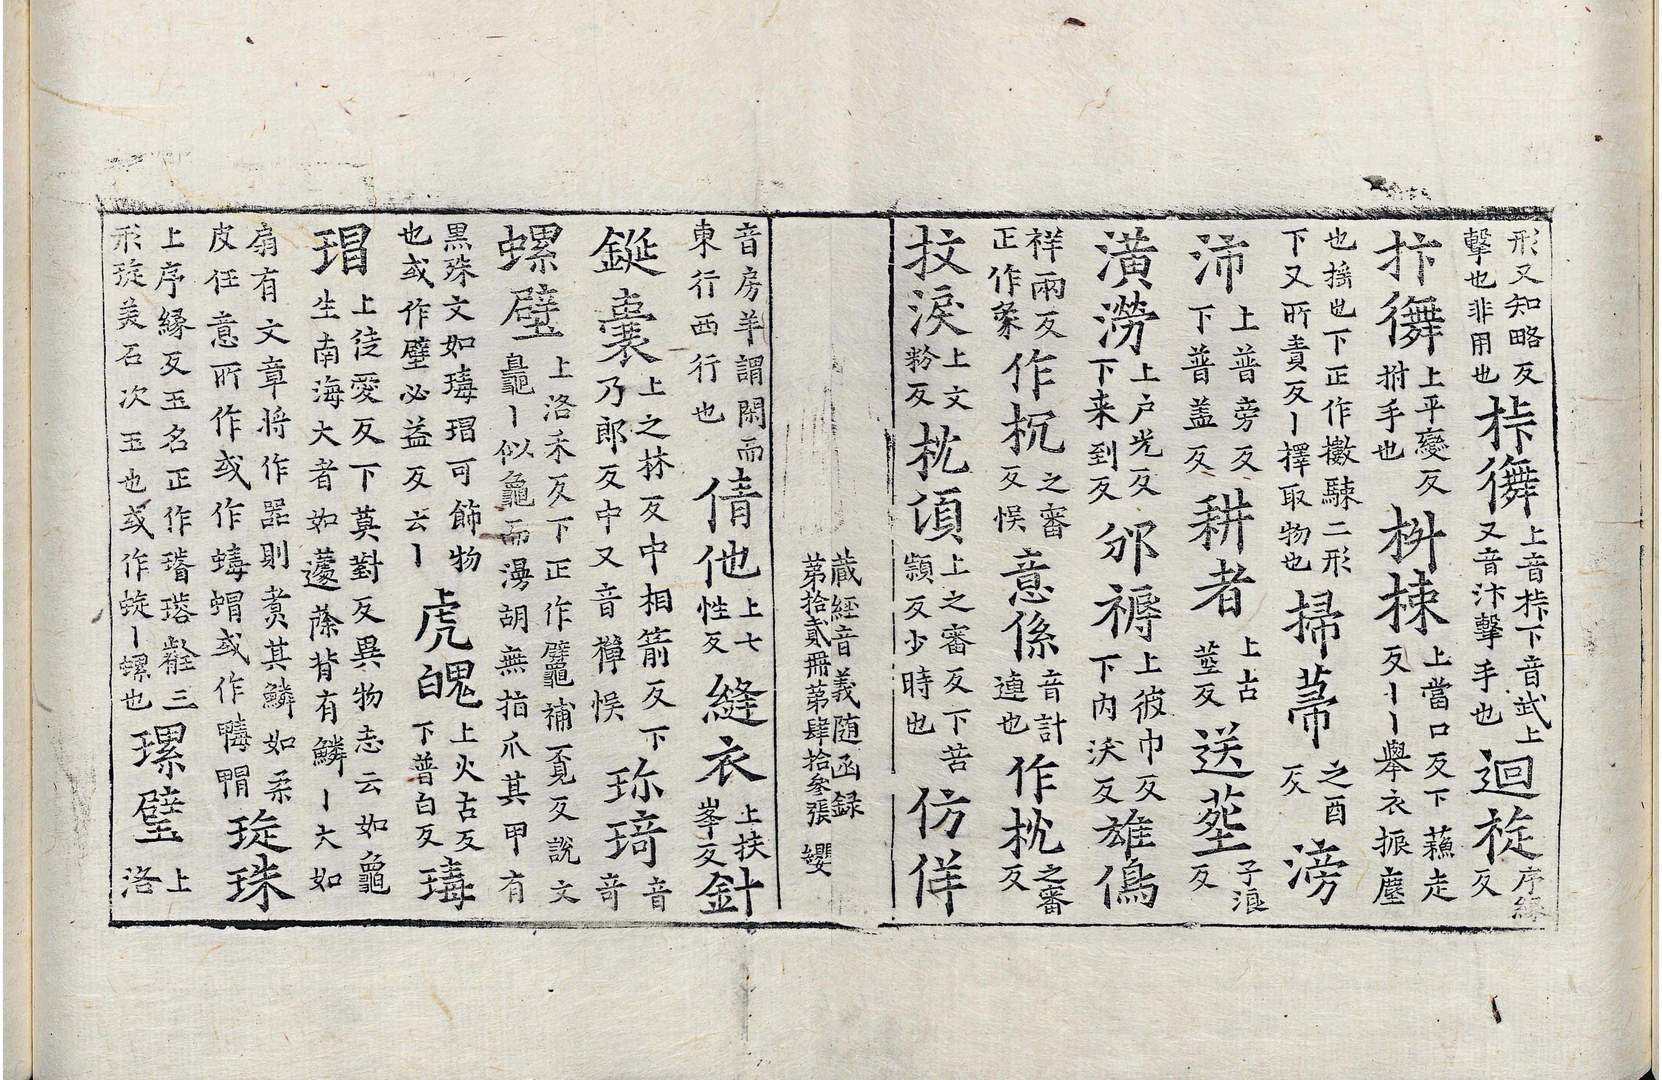 形又知略反
擊也非用也
桛𢍆上音桛下音武上
又音汴擊手也
迴旋序緣反
抃儛上平變反
拊手也
枡㨂上當口反下蘓走
反丨丨舉衣振塵
也摇也下正作擻駷二形
下又所責反丨擇取物也
掃蔕之酉反
滂
沛上普旁反
下普盖反
耕者上古
莖反
送塟子浪
反
潢澇上户光反
下来到反
邠褥上彼巾反
下内沃反
雄傿
祥兩反
正作象
作枙之審
反悮
意係音計
連也
作枕之審
反
抆淚上文
粉反
枕頃上之審反下苦
頴反少時也
仿佯
藏經音義随函録
第拾貳冊第肆拾叄張 嬰
音房羊謂閑而
東行西行也
倩他上七
性反
縫衣上扶
峯反
針
鋋囊上之林反中相箭反下
乃郎反中又音樿悮
珎琦音
奇
螺鼊上洛禾反下正作鼊𪓟補覔反說文
鼊丨似龜而漫胡無指爪其甲有
黒珠文如瑇瑁可飾物
也或作壁必益反云丨
虎魄上火古反
下普白反
瑇
瑁上徒愛反下莫對反異物志云如龜
生南海大者如蘧蒢背有鱗丨大如
扇有文章将作噐則煑其鱗如柔
皮任意所作或作蝳蝐或作𪓷𪓹
琁珠
上序緣反玉名正作璿璿𧇖三
形琁美石次玉也或作蜁丨螺也
瑮璧上
洛